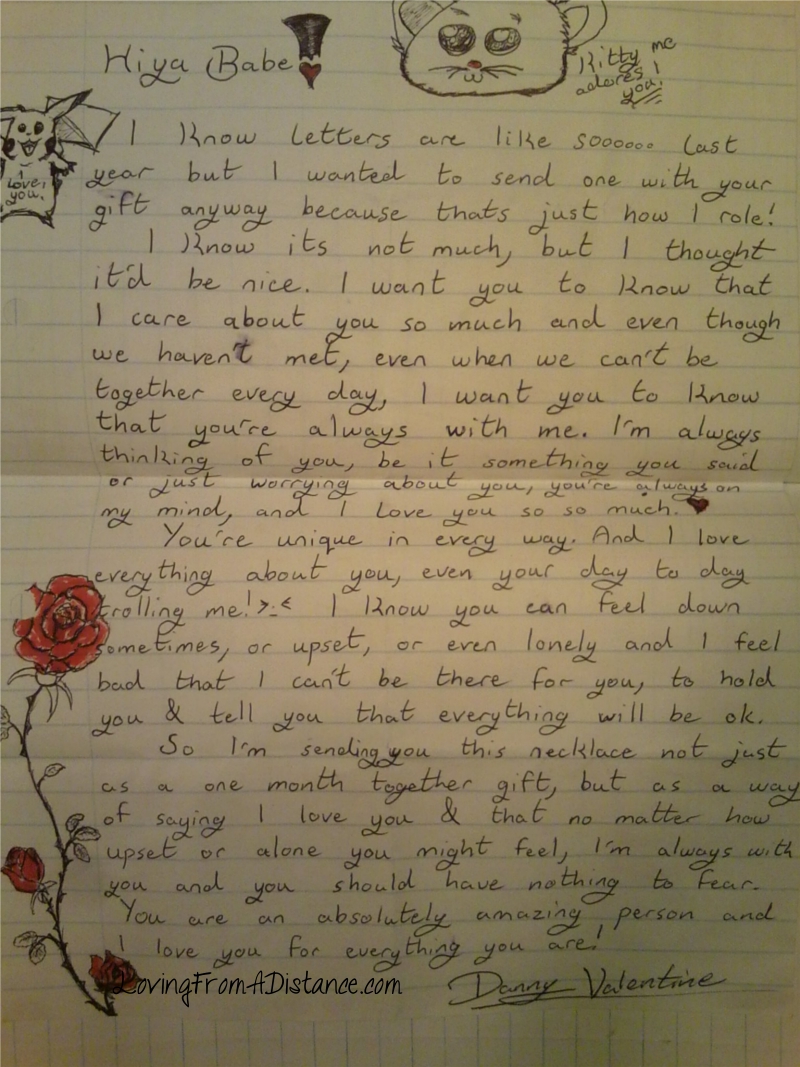 Hiya Babe
Kitty me
adores!
you!
I
Love,
you.
I Know Letters are like soooooo Last
year but I wanted to send one with your
gift anyway because thats just how I role!
I Know its not much, but I thought
it'd be nice. I want you to Know that
I care about you so much and even though
we haven't met, even when we can't be
together every day, I want you to Know
that you're always with me. I'm always
thinking of you, be it something you said
or just worrying about you, you're always on
my mind, and I Love you so so much. ♥
You're unique in every way. And I love
everything about you, even your day to day
trolling me! >.< I Know you can feel down
sometimes, or upset, or even lonely and I feel
bad that I can't be there for you, to hold
you & tell you that everything will be ok.
So I'm sending you this necklace not just
as a one month together gift, but as a way
of saying I love you & that no matter how
upset or alone you might feel, I'm always with
you and you should have nothing to fear.
You are an absolutely amazing person and
I love you for everything you are!
LovingFromADistance.com
Danny Valentine